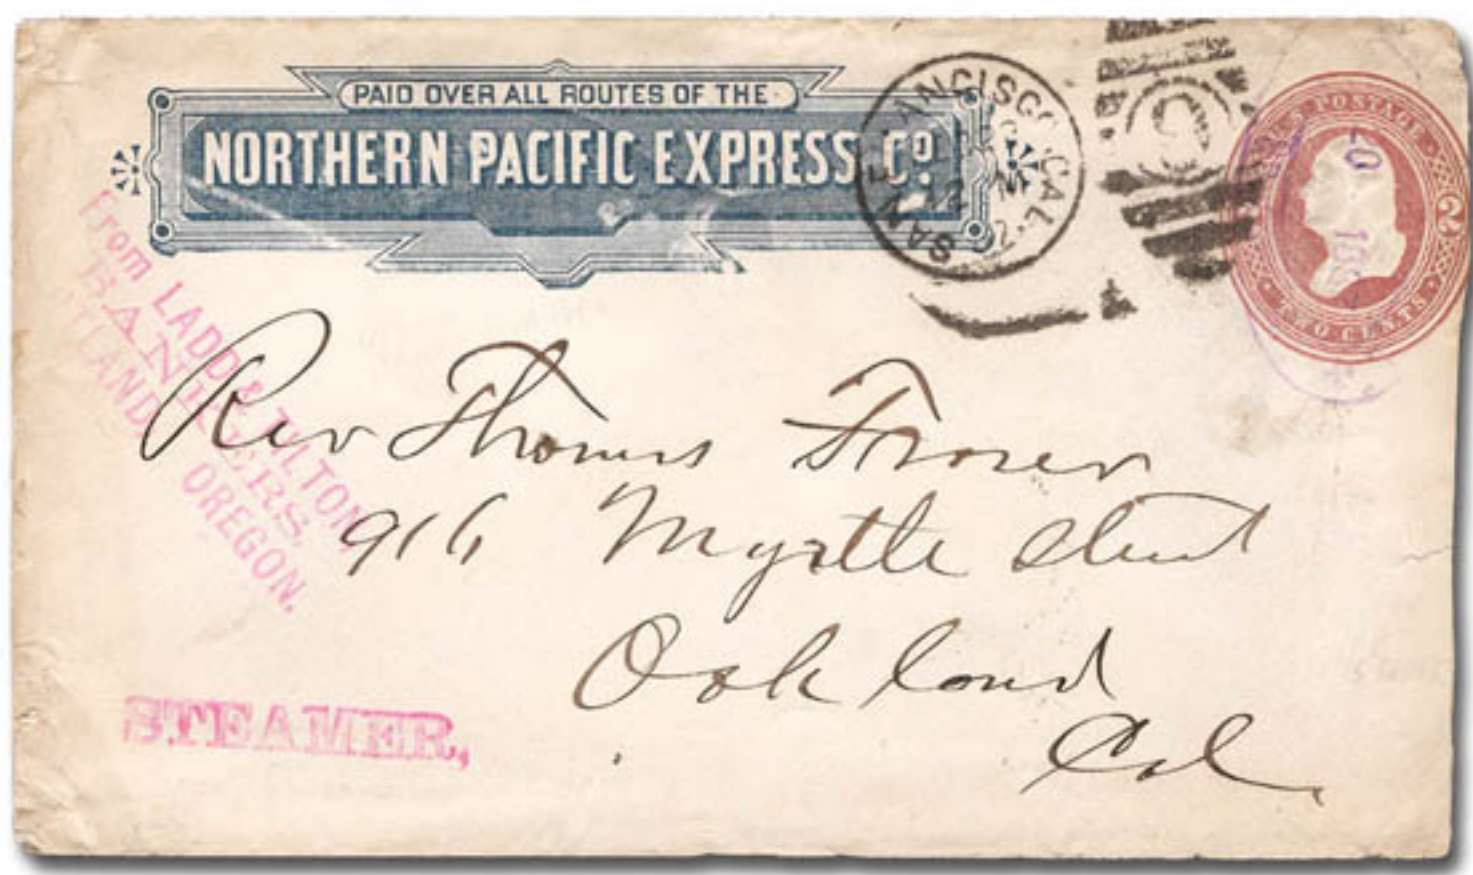 PAID OVER ALL ROUTES OF THE
NORTHERN PACIFIC EXPRESS Co.
SAN FRANCISCO, CAL.
U.S. POSTAGE
2
TWO CENTS
From LADD & TILTON,
BANKERS,
PORTLAND, OREGON.
Rev Thomas Fraser
916 Myrtle Street
Oakland
Cal.
STEAMER,